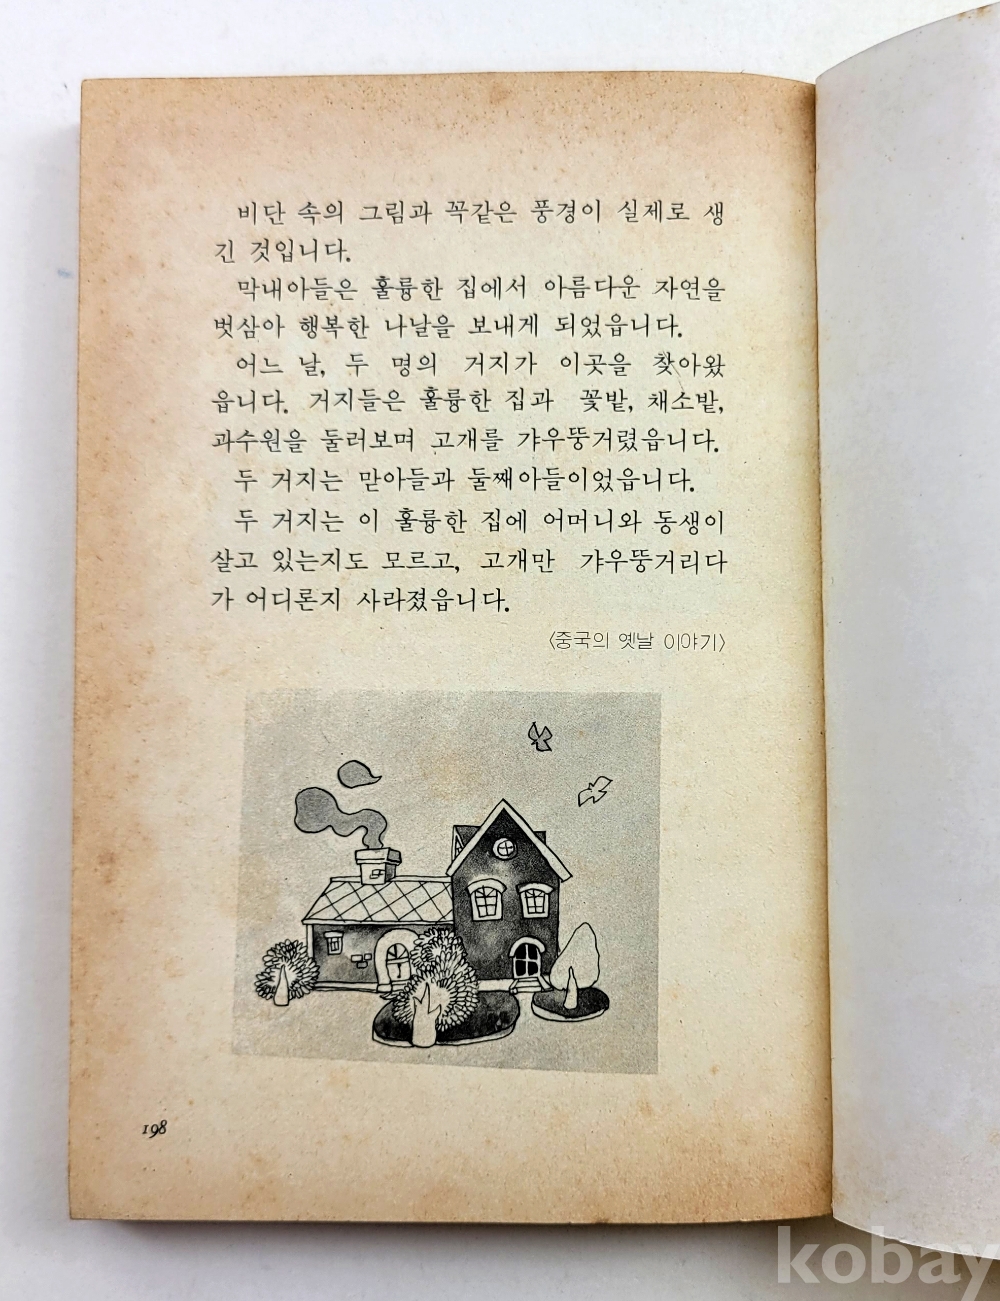 비단 속의 그림과 꼭같은 풍경이 실제로 생
긴 것입니다.
막내아들은 훌륭한 집에서 아름다운 자연을
벗삼아 행복한 나날을 보내게 되었읍니다.
어느 날, 두 명의 거지가 이곳을 찾아왔
읍니다. 거지들은 훌륭한 집과 꽃밭, 채소밭,
과수원을 둘러보며 고개를 갸우뚱거렸읍니다.
두 거지는 맏아들과 둘째아들이었읍니다.
두 거지는 이 훌륭한 집에 어머니와 동생이
살고 있는지도 모르고, 고개만 갸우뚱거리다
가 어디론지 사라졌읍니다.
〈중국의 옛날 이야기〉
198
kobay